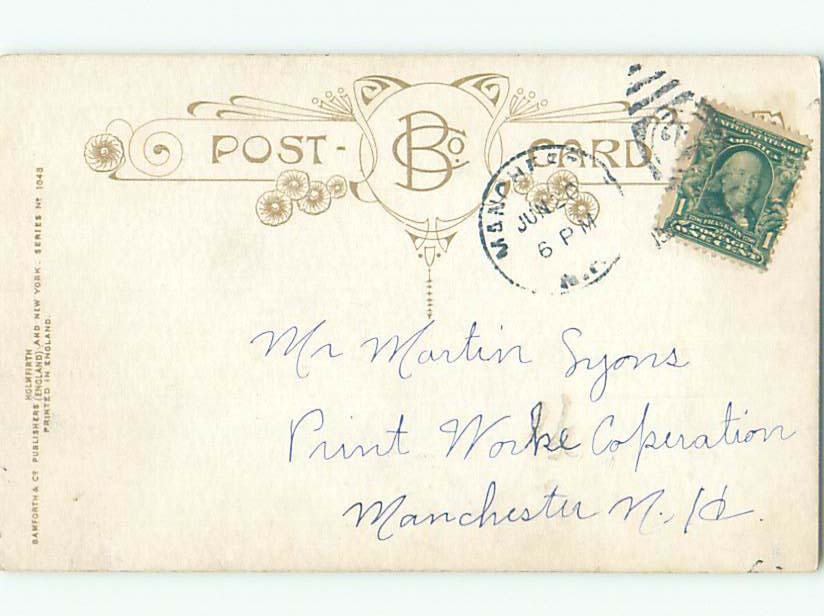 POST-CARD
BCo.
MANCHES
JUN 20
6 PM
N.H.
UNITED STATES OF
AMERICA
1 1
POSTAGE
ONE CENT
Mr Martin Lyons
Print Worke Coperation
Manchester N.H.
BAMFORTH & Co PUBLISHERS (ENGLAND) AND NEW YORK. SERIES No 1043
HOLMFIRTH
PRINTED IN ENGLAND.